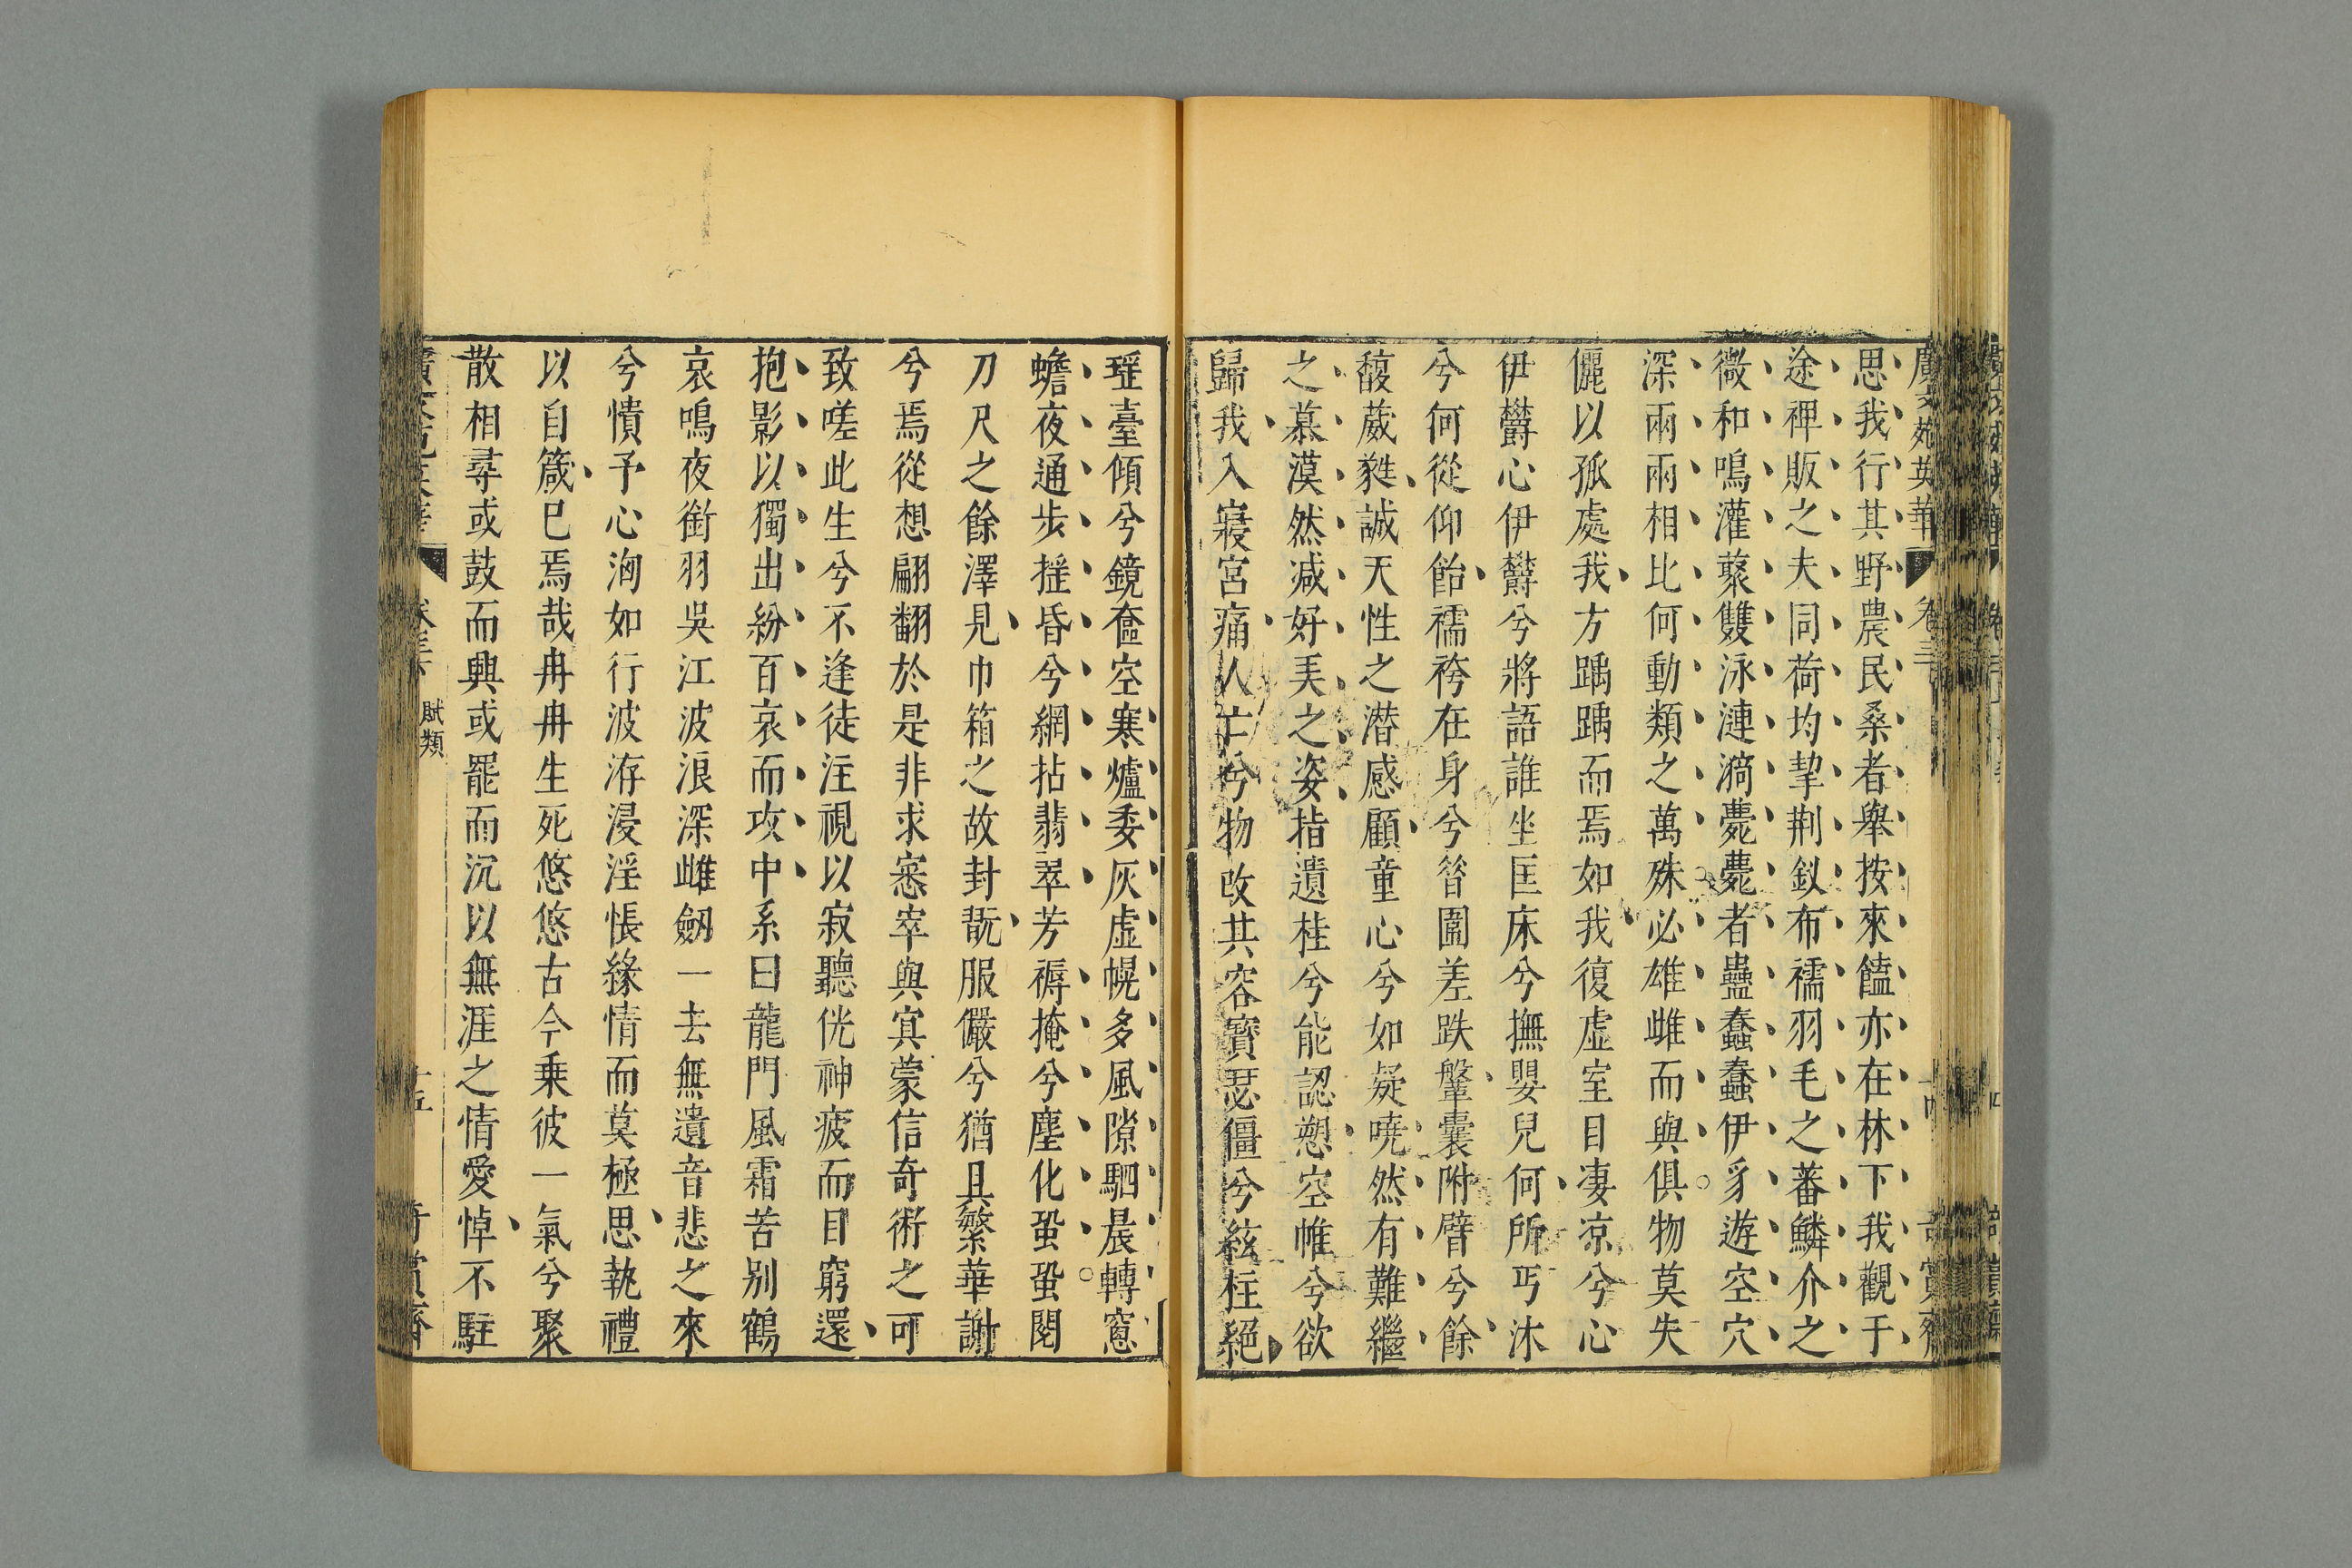 廣文苑英華 卷三 十四 奇賞齋
思我行其野農民桑者舉按來饁亦在林下我觀于
途禆販之夫同荷均挈荆釵布襦羽毛之蕃鱗介之
微和鳴灌藂雙泳漣漪薨薨者蟲蠢蠢伊豸遊空穴
深兩兩相比何動類之萬殊必雄雌而與俱物莫失
儷以孤處我方踽踽而焉如我復虛室目凄凉兮心
伊欝心伊欝兮將語誰坐匡床兮撫嬰兒何所丐沐
兮何從仰飴襦袴在身兮昝圍差跌鞶囊附臂兮餘
馥葳蕤誠天性之潜感顧童心兮如疑曉然有難繼
之慕漠然减好美之姿指遺桂兮能認愬空帷兮欲
歸我入寢宮痛人亡兮物改其容寶瑟僵兮絃柱絕
瑶臺傾兮鏡奩空寒爐委灰虛幌多風隙駟晨轉窻
蟾夜通步摇昏兮網拈翡翠芳褥掩兮塵化蛩蛩閱
刀尺之餘澤見巾箱之故封翫服儼兮猶具繁華謝
兮焉從想翩翻於是非求窸窣與㝠蒙信奇術之可
致嗟此生兮不逢徒注視以寂聽恍神疲而目窮還
抱影以獨出紛百哀而攻中系曰龍門風霜苦别鶴
哀鳴夜銜羽吳江波浪深雌劒一去無遺音悲之來
兮憤予心洶如行波洊浸淫悵緣情而莫極思執禮
以自箴已焉哉冉冉生死悠悠古今乗彼一氣兮聚
散相尋或鼓而興或罷而沉以無涯之情愛悼不駐
賦類 十五